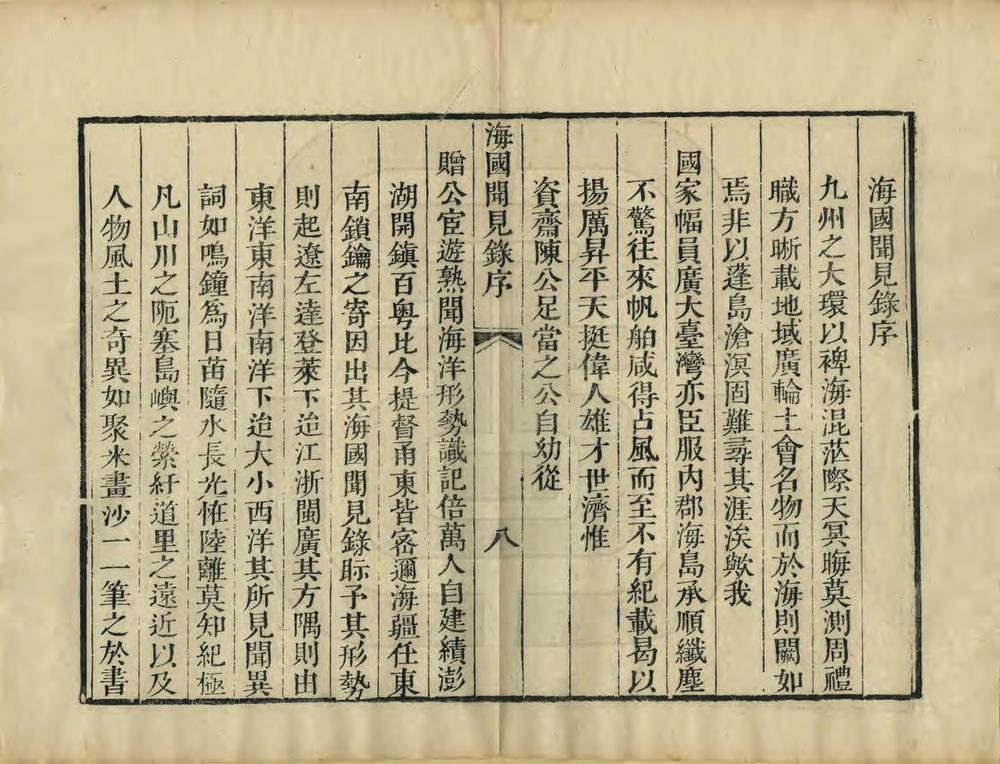 海國聞見錄序
九州之大環以裨海混茫際天冥晦莫測周禮
職方晰載地域廣輪土會名物而於海則闕如
焉非以蓬島滄溟固難尋其涯涘歟我
國家幅員廣大臺灣亦臣服內郡海島承順纖塵
不驚往來帆舶咸得占風而至不有紀載曷以
揚厲昇平天挺偉人雄才世濟惟
資齋陳公足當之公自幼從
海國聞見錄序 八
贈公宦遊熟聞海洋形勢識記倍萬人自建績澎
湖開鎮百粵比今提督甬東皆密邇海疆任東
南鎖鑰之寄因出其海國聞見錄眎予其形勢
則起遼左達登萊下迨江浙閩廣其方隅則由
東洋東南洋南洋下迨大小西洋其所見聞異
詞如鳴鐘為日苗隨水長光怪陸離莫知紀極
凡山川之阨塞島嶼之縈紆道里之遠近以及
人物風土之奇異如聚米畫沙一一筆之於書